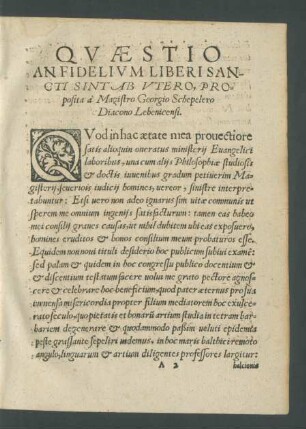 QVÆSTIO
AN FIDELIVM LIBERI SAN-
CTI SINT AB VTERO, PRO-
posita à Magistro Georgio Schepelero
Diacono Lebenicensi.
QVod in hac ætate mea prouectiore
satis alioquin oneratus ministerij Euangelici
laboribus, una cum alijs Philosophiæ studiosis
& doctis iuuenibus gradum petiuerim Ma-
gisterij, seuerioris iudicij homines, uereor, sinistre interpre-
tabuntur: Etsi uero non adeo ignarus sim uitæ communis ut
sperem me omnium ingenijs satisfacturum: tamen eas habeo
mei consilij graues causas, ut nihil dubitem ubi eas exposuero,
homines eruditos & bonos consilium meum probaturos esse.
Equidem non noui tituli desiderio hoc publicum subiui examē:
sed palàm & quidem in hoc congressu publico docentium &
& discentium testatum facere uolui me grato pectore agnosce-
re & celebrare hoc beneficium, quod pater æternus pro sua
immensa misericordia propter filium mediatorem hoc exulce-
rato seculo, quo pietatis et bonarū artium studia in tetram bar-
bariem degenerare & quodammodo paßim ueluti epidemia
peste grassante sepeliri uidemus, in hoc maris balthici remoto
angulo, linguarum & artium diligentes professores largitur:
A 2